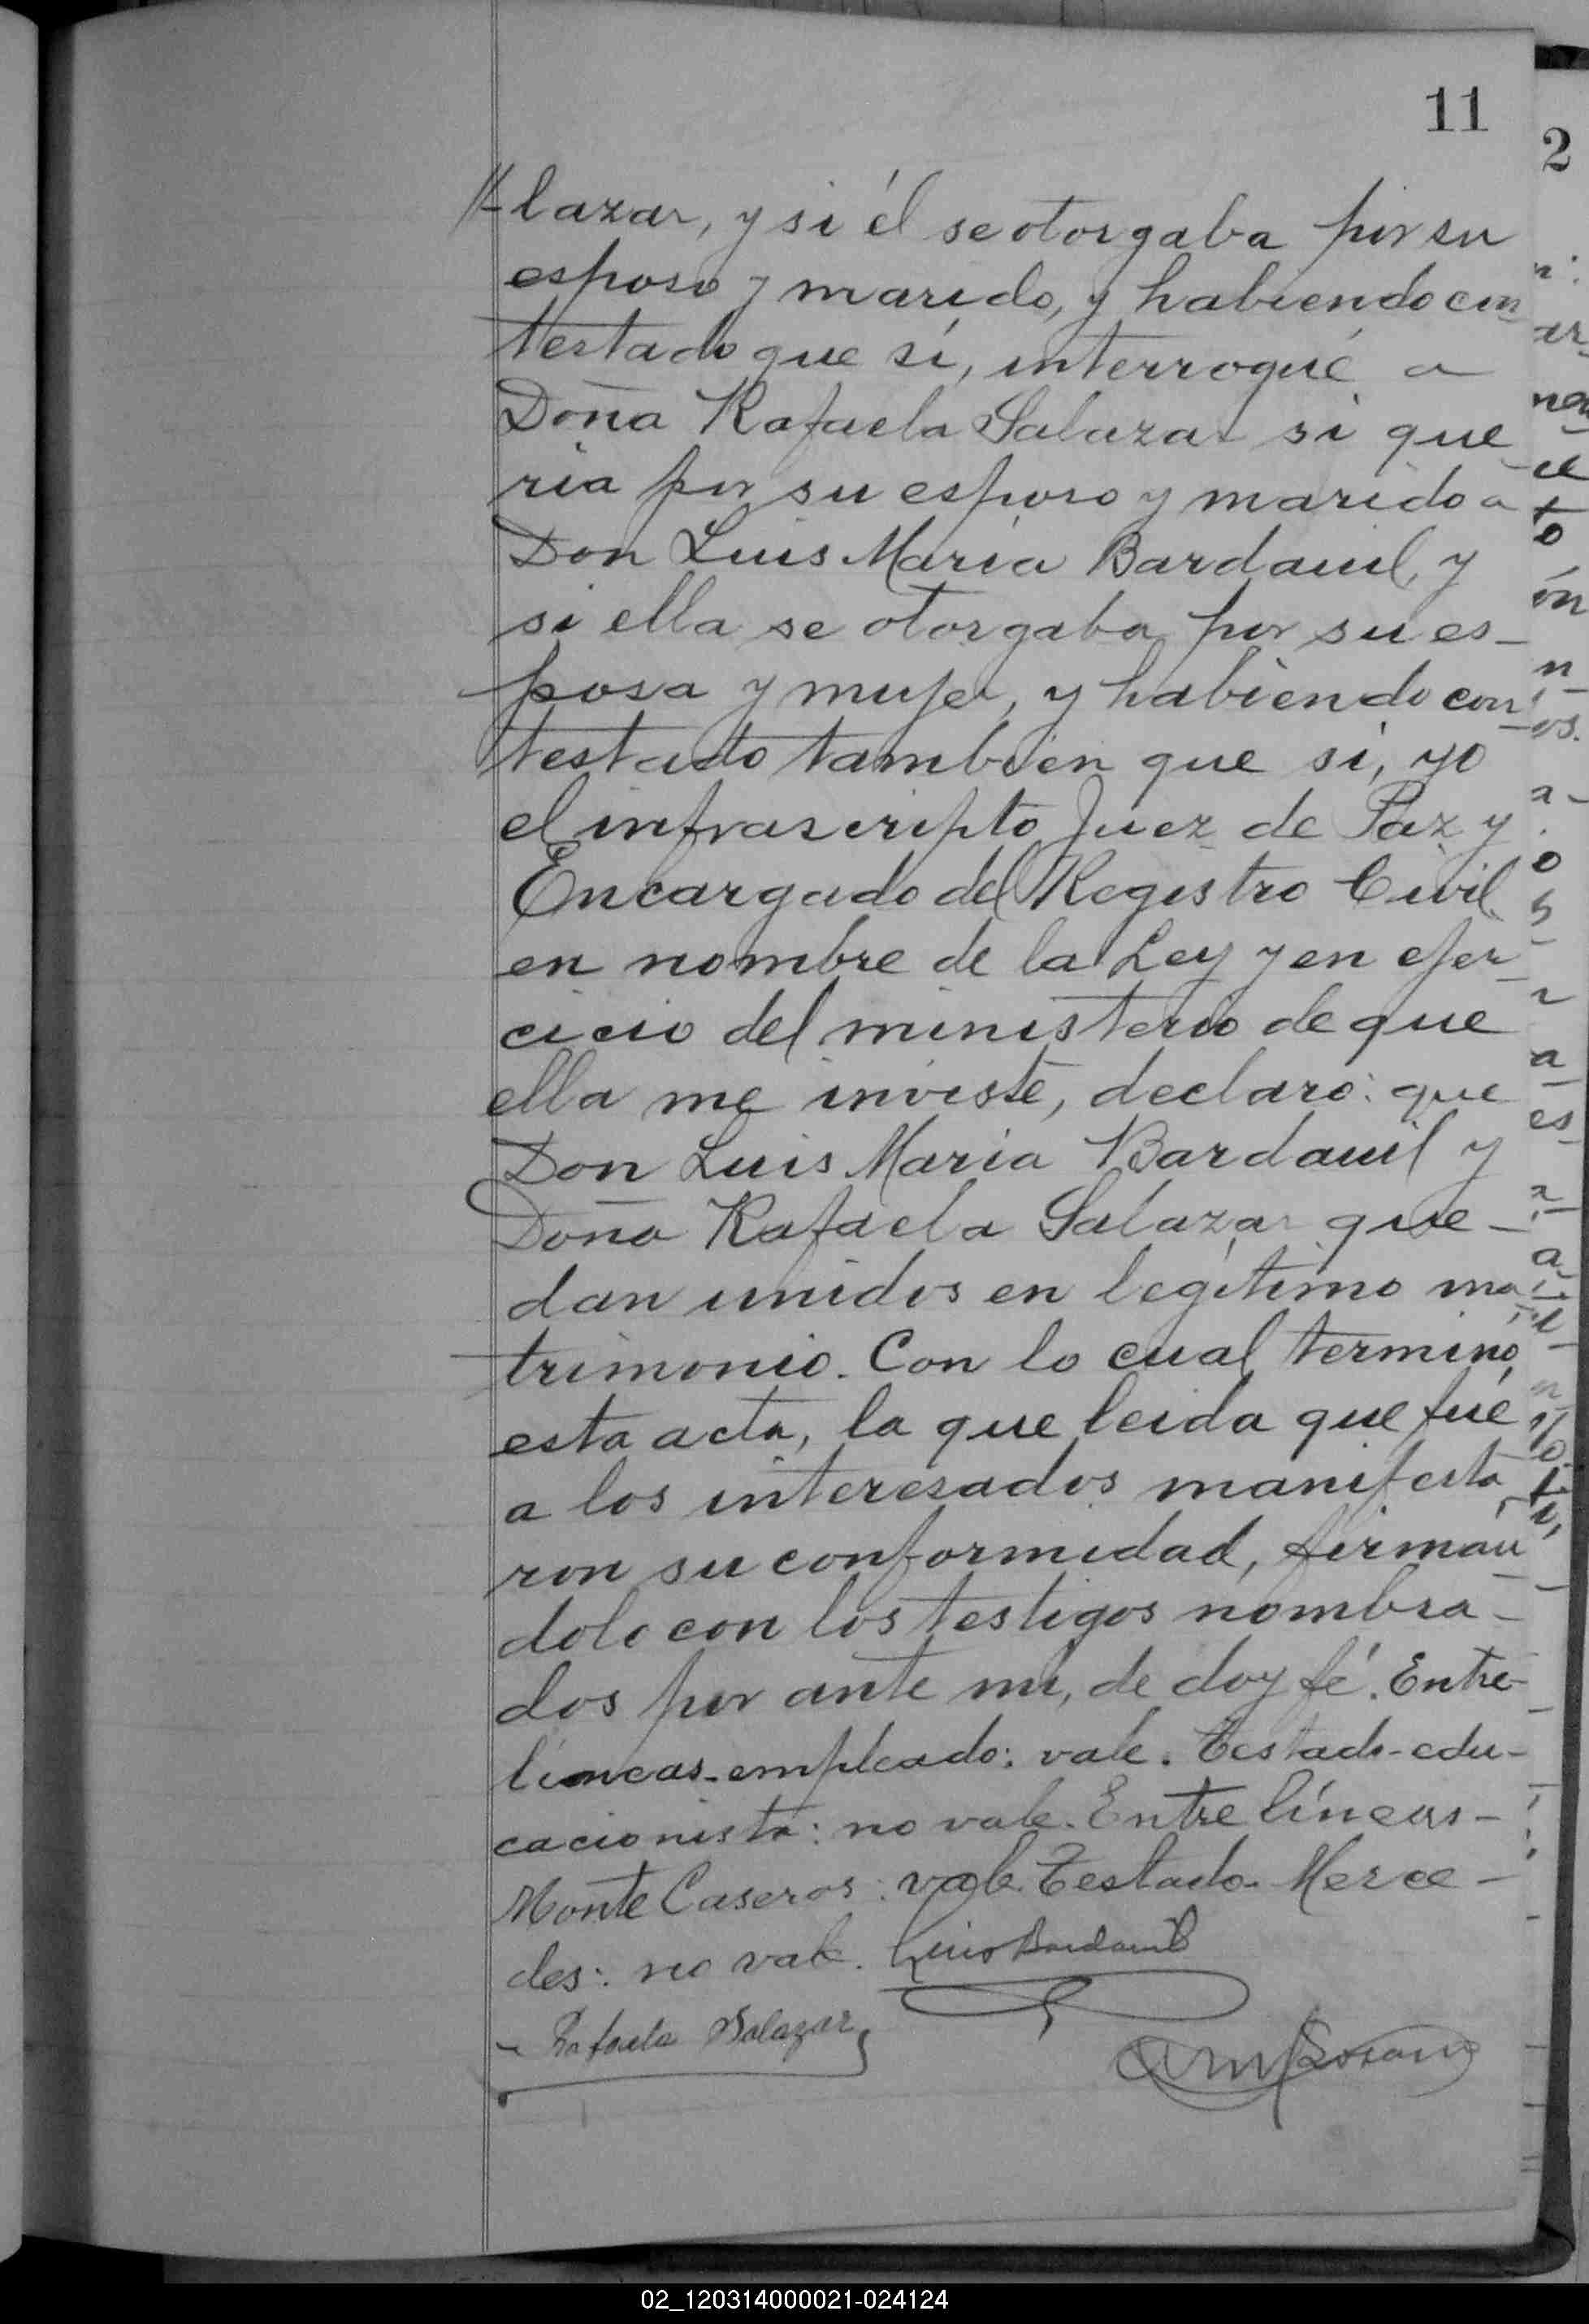 11
lazar, y si él se otorgaba por su
esposo y marido, y habiendo con
testado que sí, interrogué a
Doña Rafaela Salazar si que
ria por su esposo y marido a
Don Luis María Bardauil, y
si ella se otorgaba por su es-
posa y mujer, y habiendo con
testado también que si, yo
el infrascripto Juez de Paz y
Encargado del Registro Civil
en nombre de la Ley y en ejer
cicio del ministerio de que
ella me inviste, declaro: que
Don Luis María Bardauil y
Doña Rafaela Salazar que-
dan unidos en legítimo ma
trimonio. Con lo cual terminó
esta acta, la que leida que fué
a los interesados manifesta
ron su conformidad, firmán
dolo con los testigos nombra-
dos por ante mi, de doy fé. Entre-
líneas-empleado: vale. Testado-edu-
cacionista: no vale. Entre líneas-
Monte Caseros: vale. Testado-Merce-
des: no vale. Luis Bardauil
Rafaela Salazar
2
02_120314000021-024124